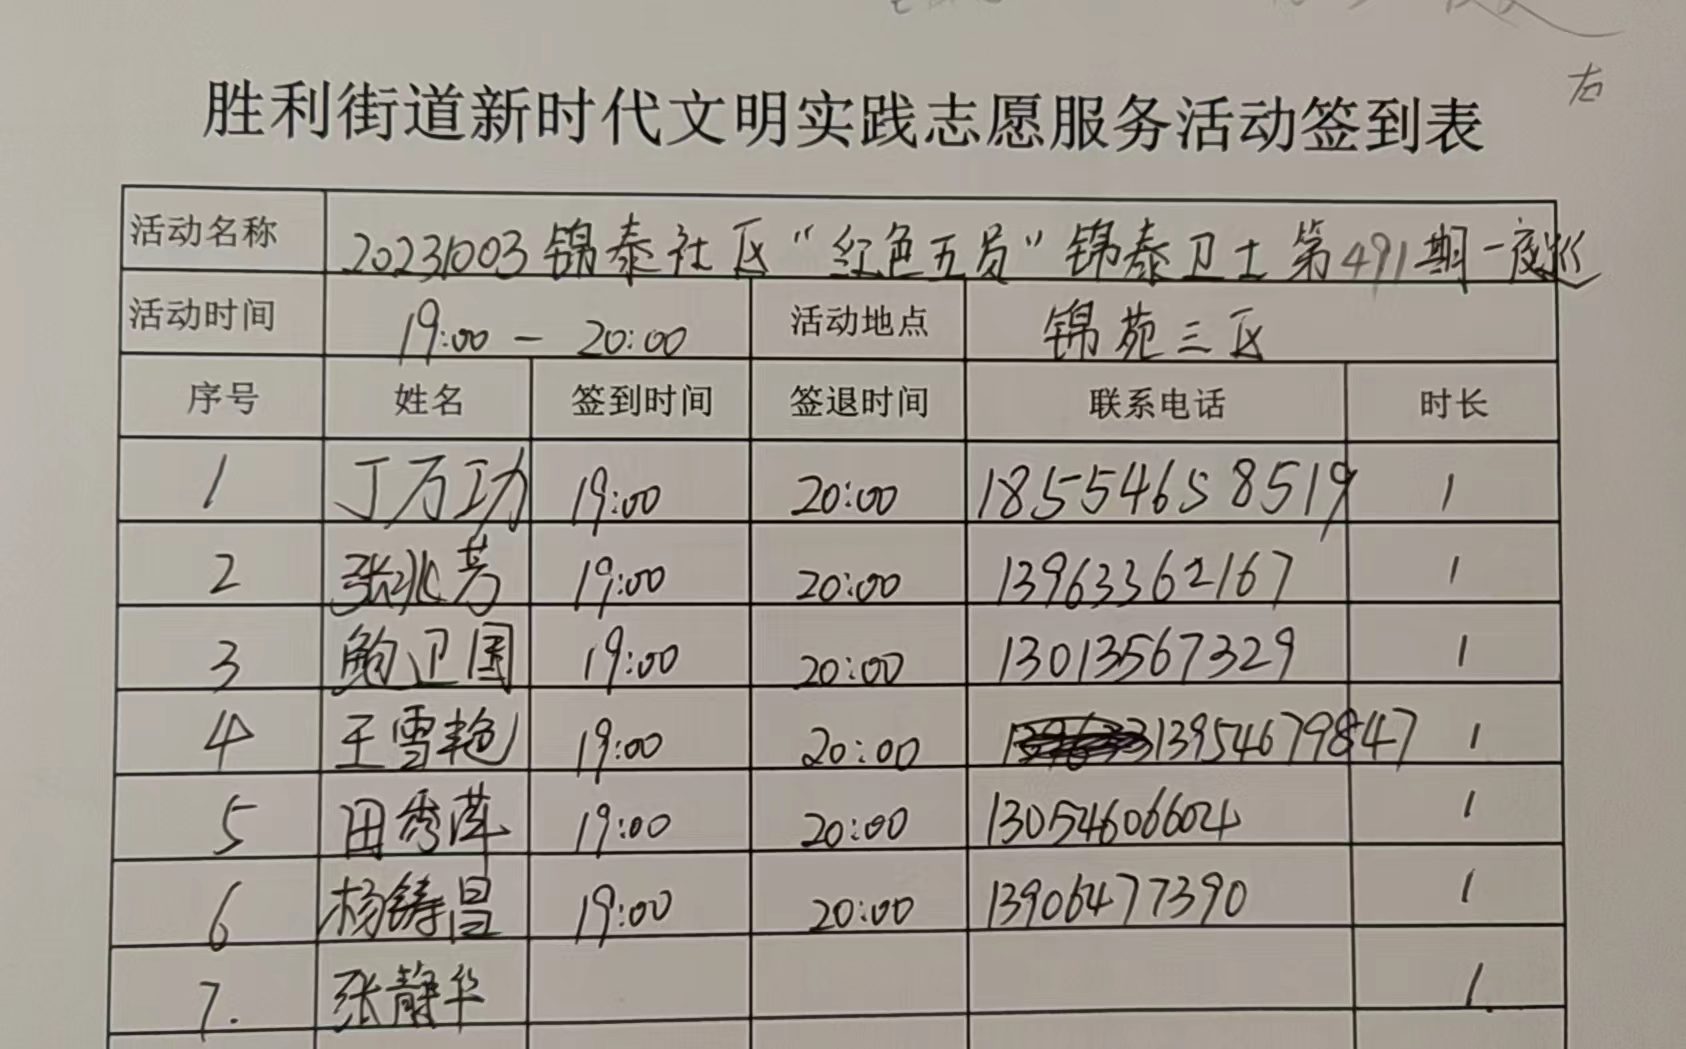 左
胜利街道新时代文明实践志愿服务活动签到表
活动名称 20231003锦泰社区“红色五员”锦泰卫士第491期一夜巡
活动时间 19:00 - 20:00 活动地点 锦苑三区
序号 姓名 签到时间 签退时间 联系电话 时长
1 丁万功 19:00 20:00 18554658519 1
2 张兆芳 19:00 20:00 13963362167 1
3 鲍卫国 19:00 20:00 13013567329 1
4 王雪艳 19:00 20:00 13954679847 1
5 田秀萍 19:00 20:00 13054606604 1
6 杨铸昌 19:00 20:00 13906477390 1
7. 张静华 1.